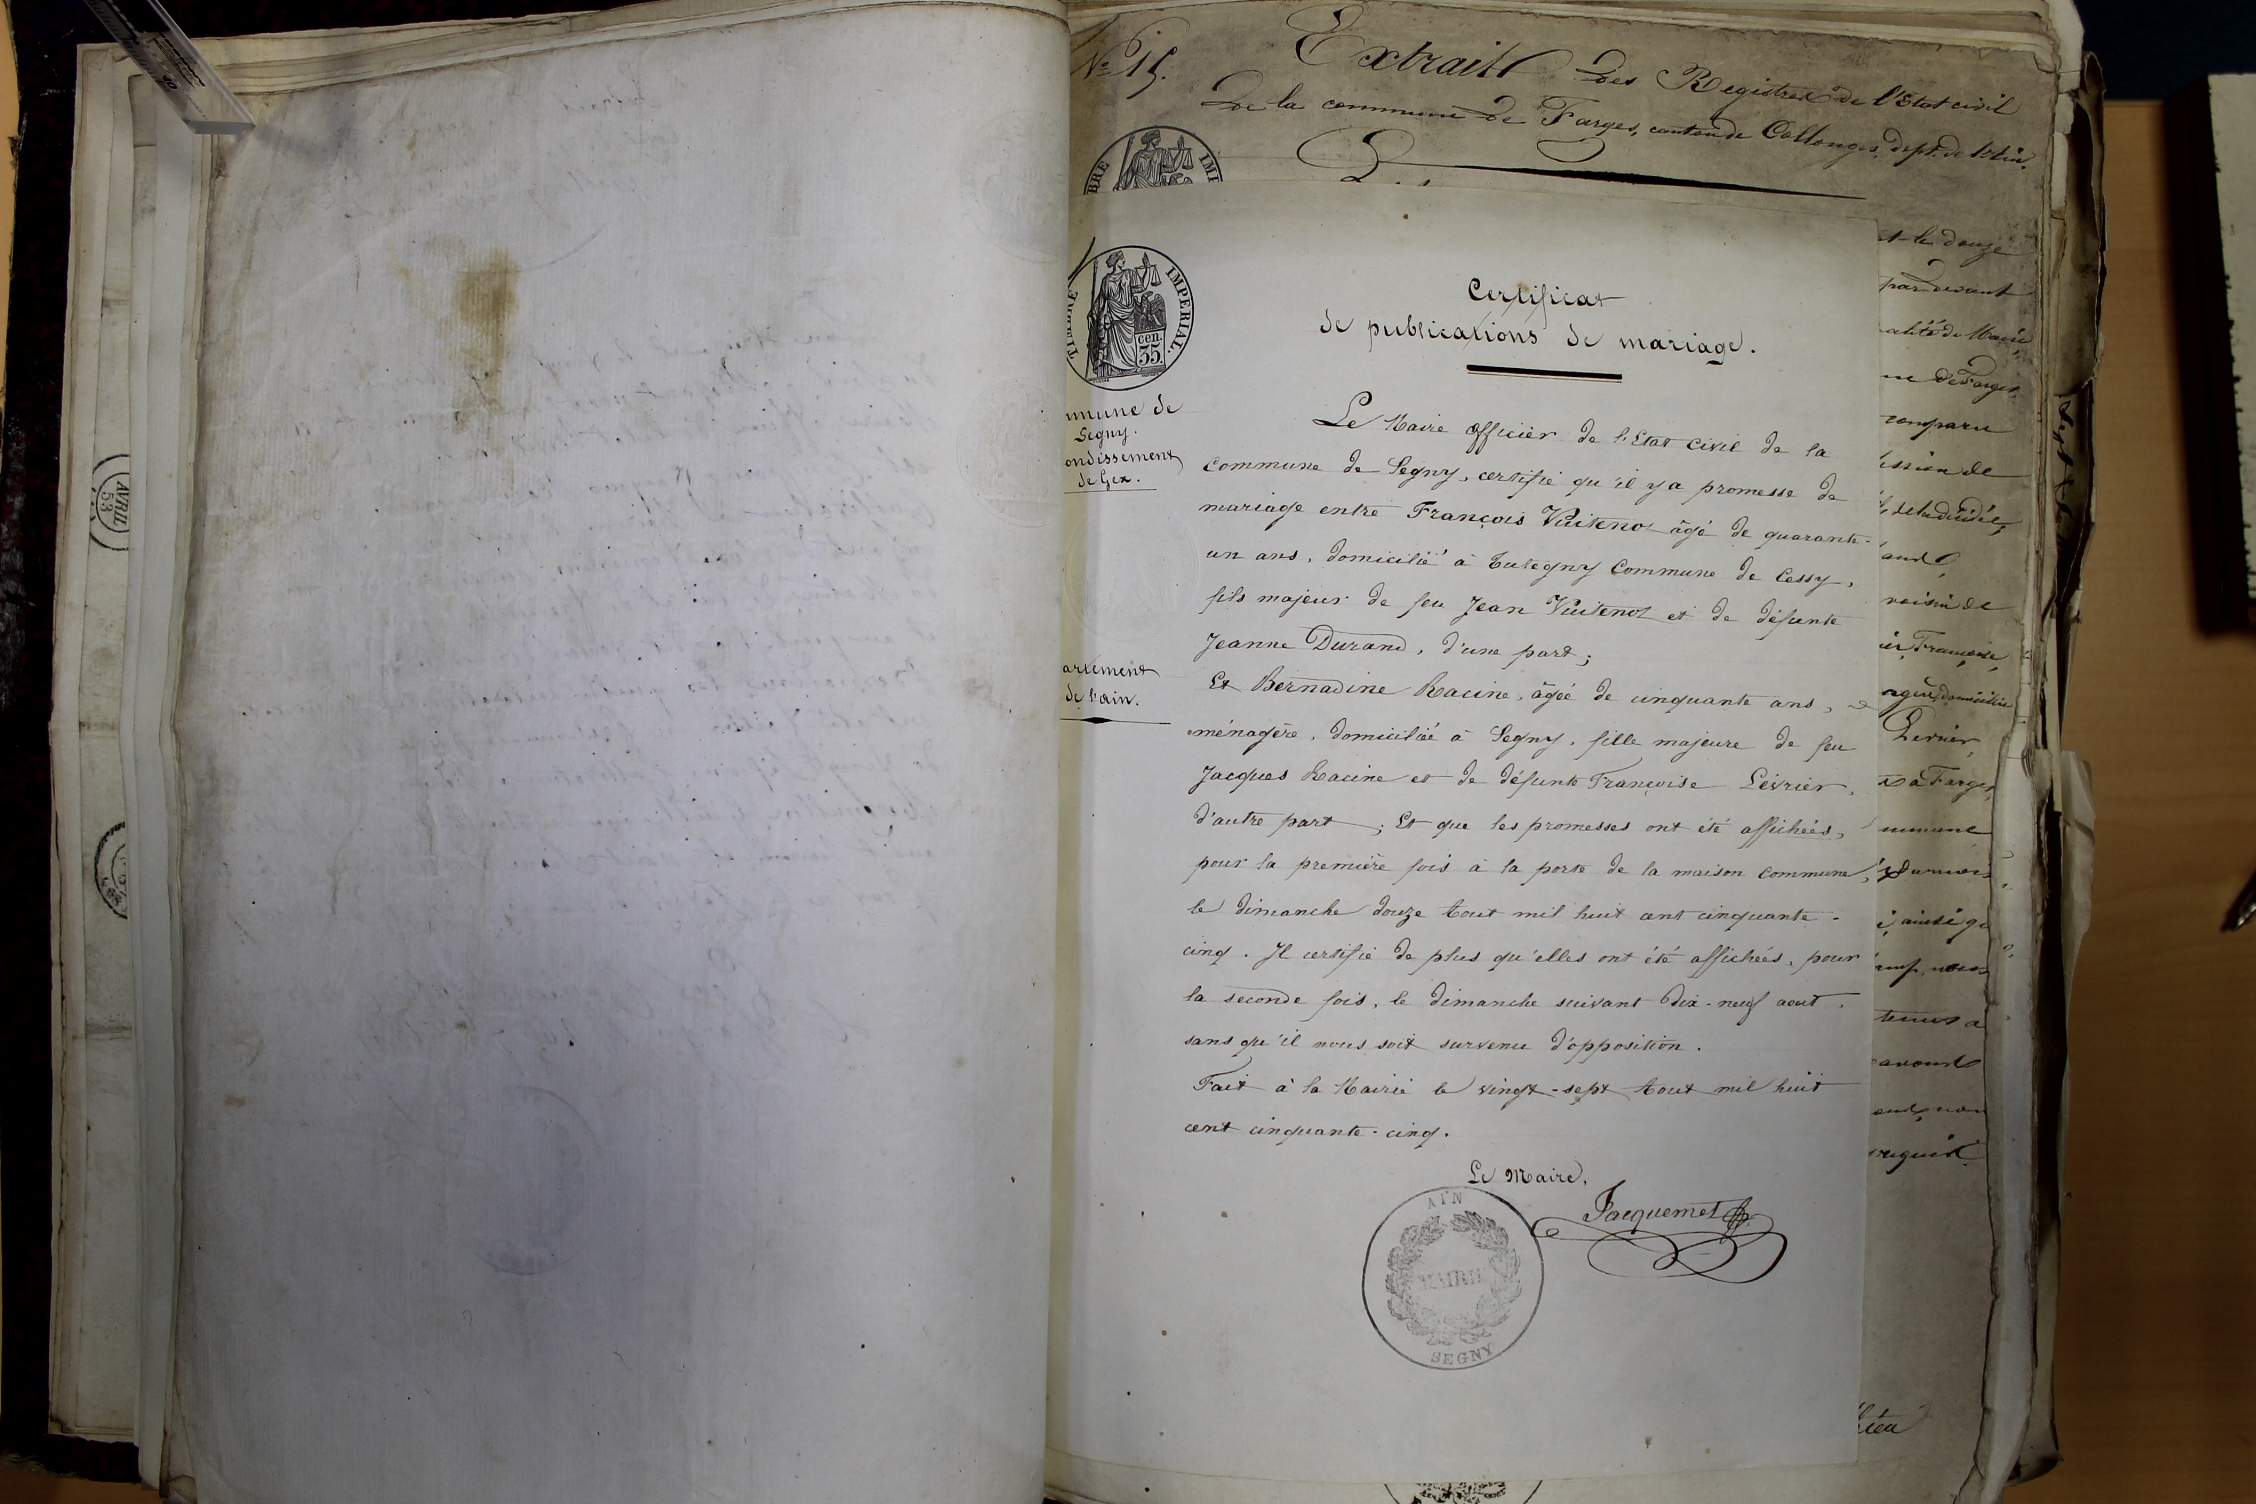 N.º 15.
Extrait des Registres de l'Etat civil
De la commune de Farges, canton de Collonges, dépt. de l'Ain.
TIMBRE IMPERIAL.
cen. 35.
Certificat
de publications de mariage.
mmune de
Segny.
ondissement
de Gex.
artement
de l'ain.
Le Maire officier de l'Etat civil de la
commune de Segny, certifie qu'il y a promesse de
mariage entre François Vuitenot âgé de quarante-
un ans, domicilié à Tutegny Commune de Cessy,
fils majeur de feu Jean Vuitenot et de défunte
Jeanne Durand, d'une part;
Et Bernadine Racine, âgée de cinquante ans,
ménagère, domiciliée à Segny, fille majeure de feu
Jacques Racine et de défunte Françoise Lévrier,
d'autre part; Et que les promesses ont été affichées,
pour la première fois à la porte de la maison commune,
le dimanche douze Aout mil huit cent cinquante-
cinq. Il certifie de plus qu'elles ont été affichées, pour
la seconde fois, le dimanche suivant dix-neuf aout,
sans qu'il nous soit survenu d'opposition.
Fait à la Mairie le vingt-sept Aout mil huit
cent cinquante-cinq.
Le Maire,
Jacquemet
AIN
MAIRIE
SEGNY
t le douze
pardevant
alité de Maire
ne de Farges
comparu
voisin de
domicilié
à Farges
mmune
ainsi q
AVRIL
53